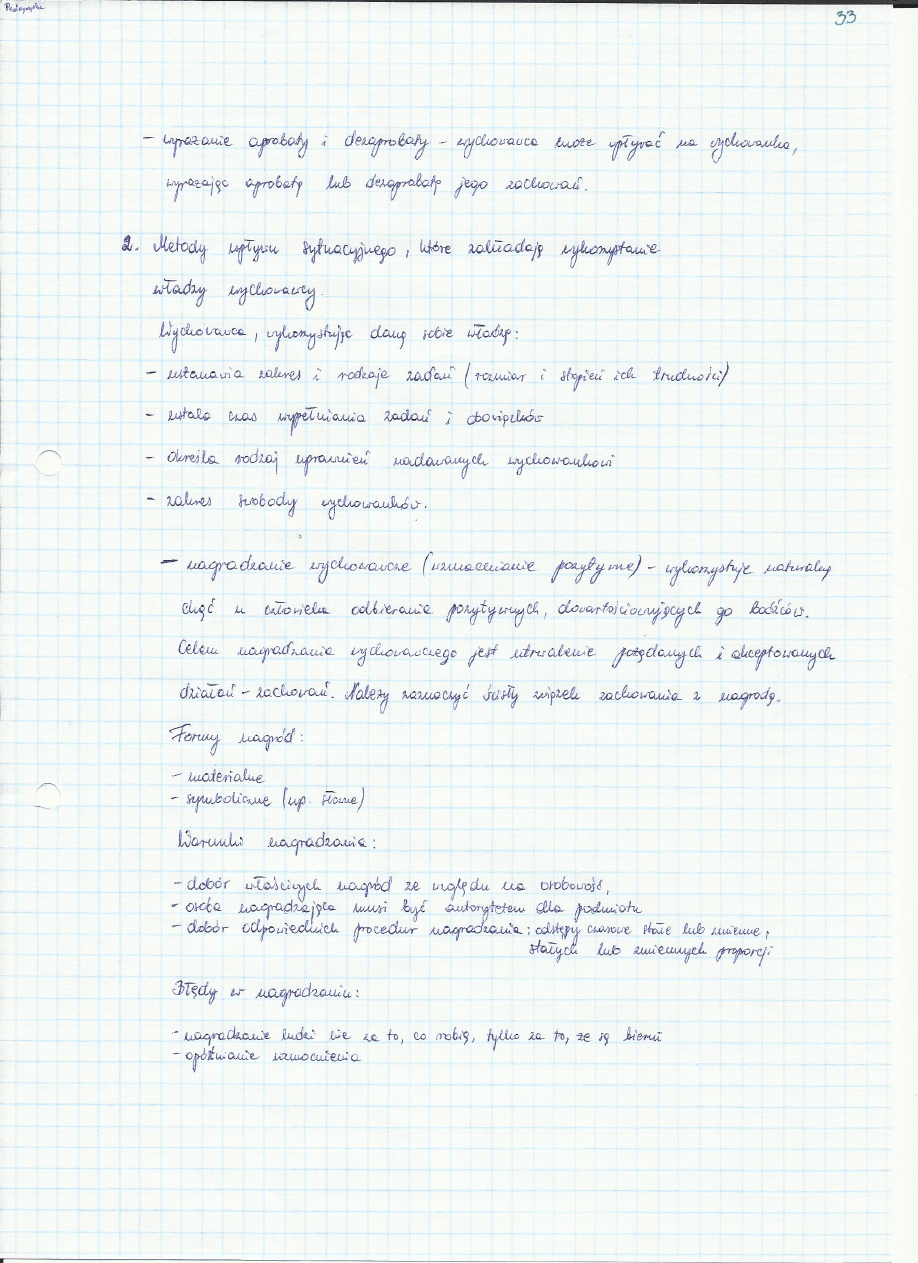 Pedagogika
33
– wyrażanie aprobaty i dezaprobaty – wychowawca może wpływać na wychowanka,
wyrażając aprobatę lub dezaprobatę jego zachowań.
2. Metody wpływu sytuacyjnego, które zakładają wykorzystanie
władzy wychowawcy.
Wychowawca, wykorzystując daną sobie władzę:
– ustanawia zakres i rodzaje zadań (rozmiar i stopień ich trudności)
– ustala czas wypełniania zadań i obowiązków
– określa rodzaj uprawnień nadawanych wychowankowi
– zakres swobody wychowanków.
– nagradzanie wychowawcze (wzmacnianie pozytywne) – wykorzystuje naturalną
chęć u człowieka odbierania pozytywnych, dowartościowujących go bodźców.
Celem nagradzania wychowawczego jest utrwalenie pożądanych i akceptowanych
działań – zachowań. Należy zaznaczyć ścisły związek zachowania z nagrodą.
Formy nagród:
– materialne
– symboliczne (np. słowne)
Warunki nagradzania:
– dobór właściwych nagród ze względu na osobowość,
– osoba nagradzająca musi być autorytetem dla podmiotu
– dobór odpowiednich procedur nagradzania: odstępy czasowe stałe lub zmienne;
stałych lub zmiennych proporcji
Błędy w nagradzaniu:
– nagradzanie ludzi nie za to, co robią, tylko za to, że są bierni
– opóźnianie wzmocnienia